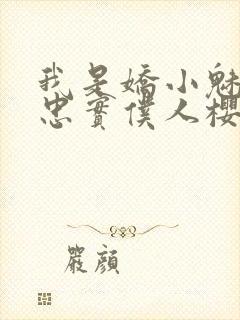 我是嬌小魅
忠實僕人櫻
嚴顏